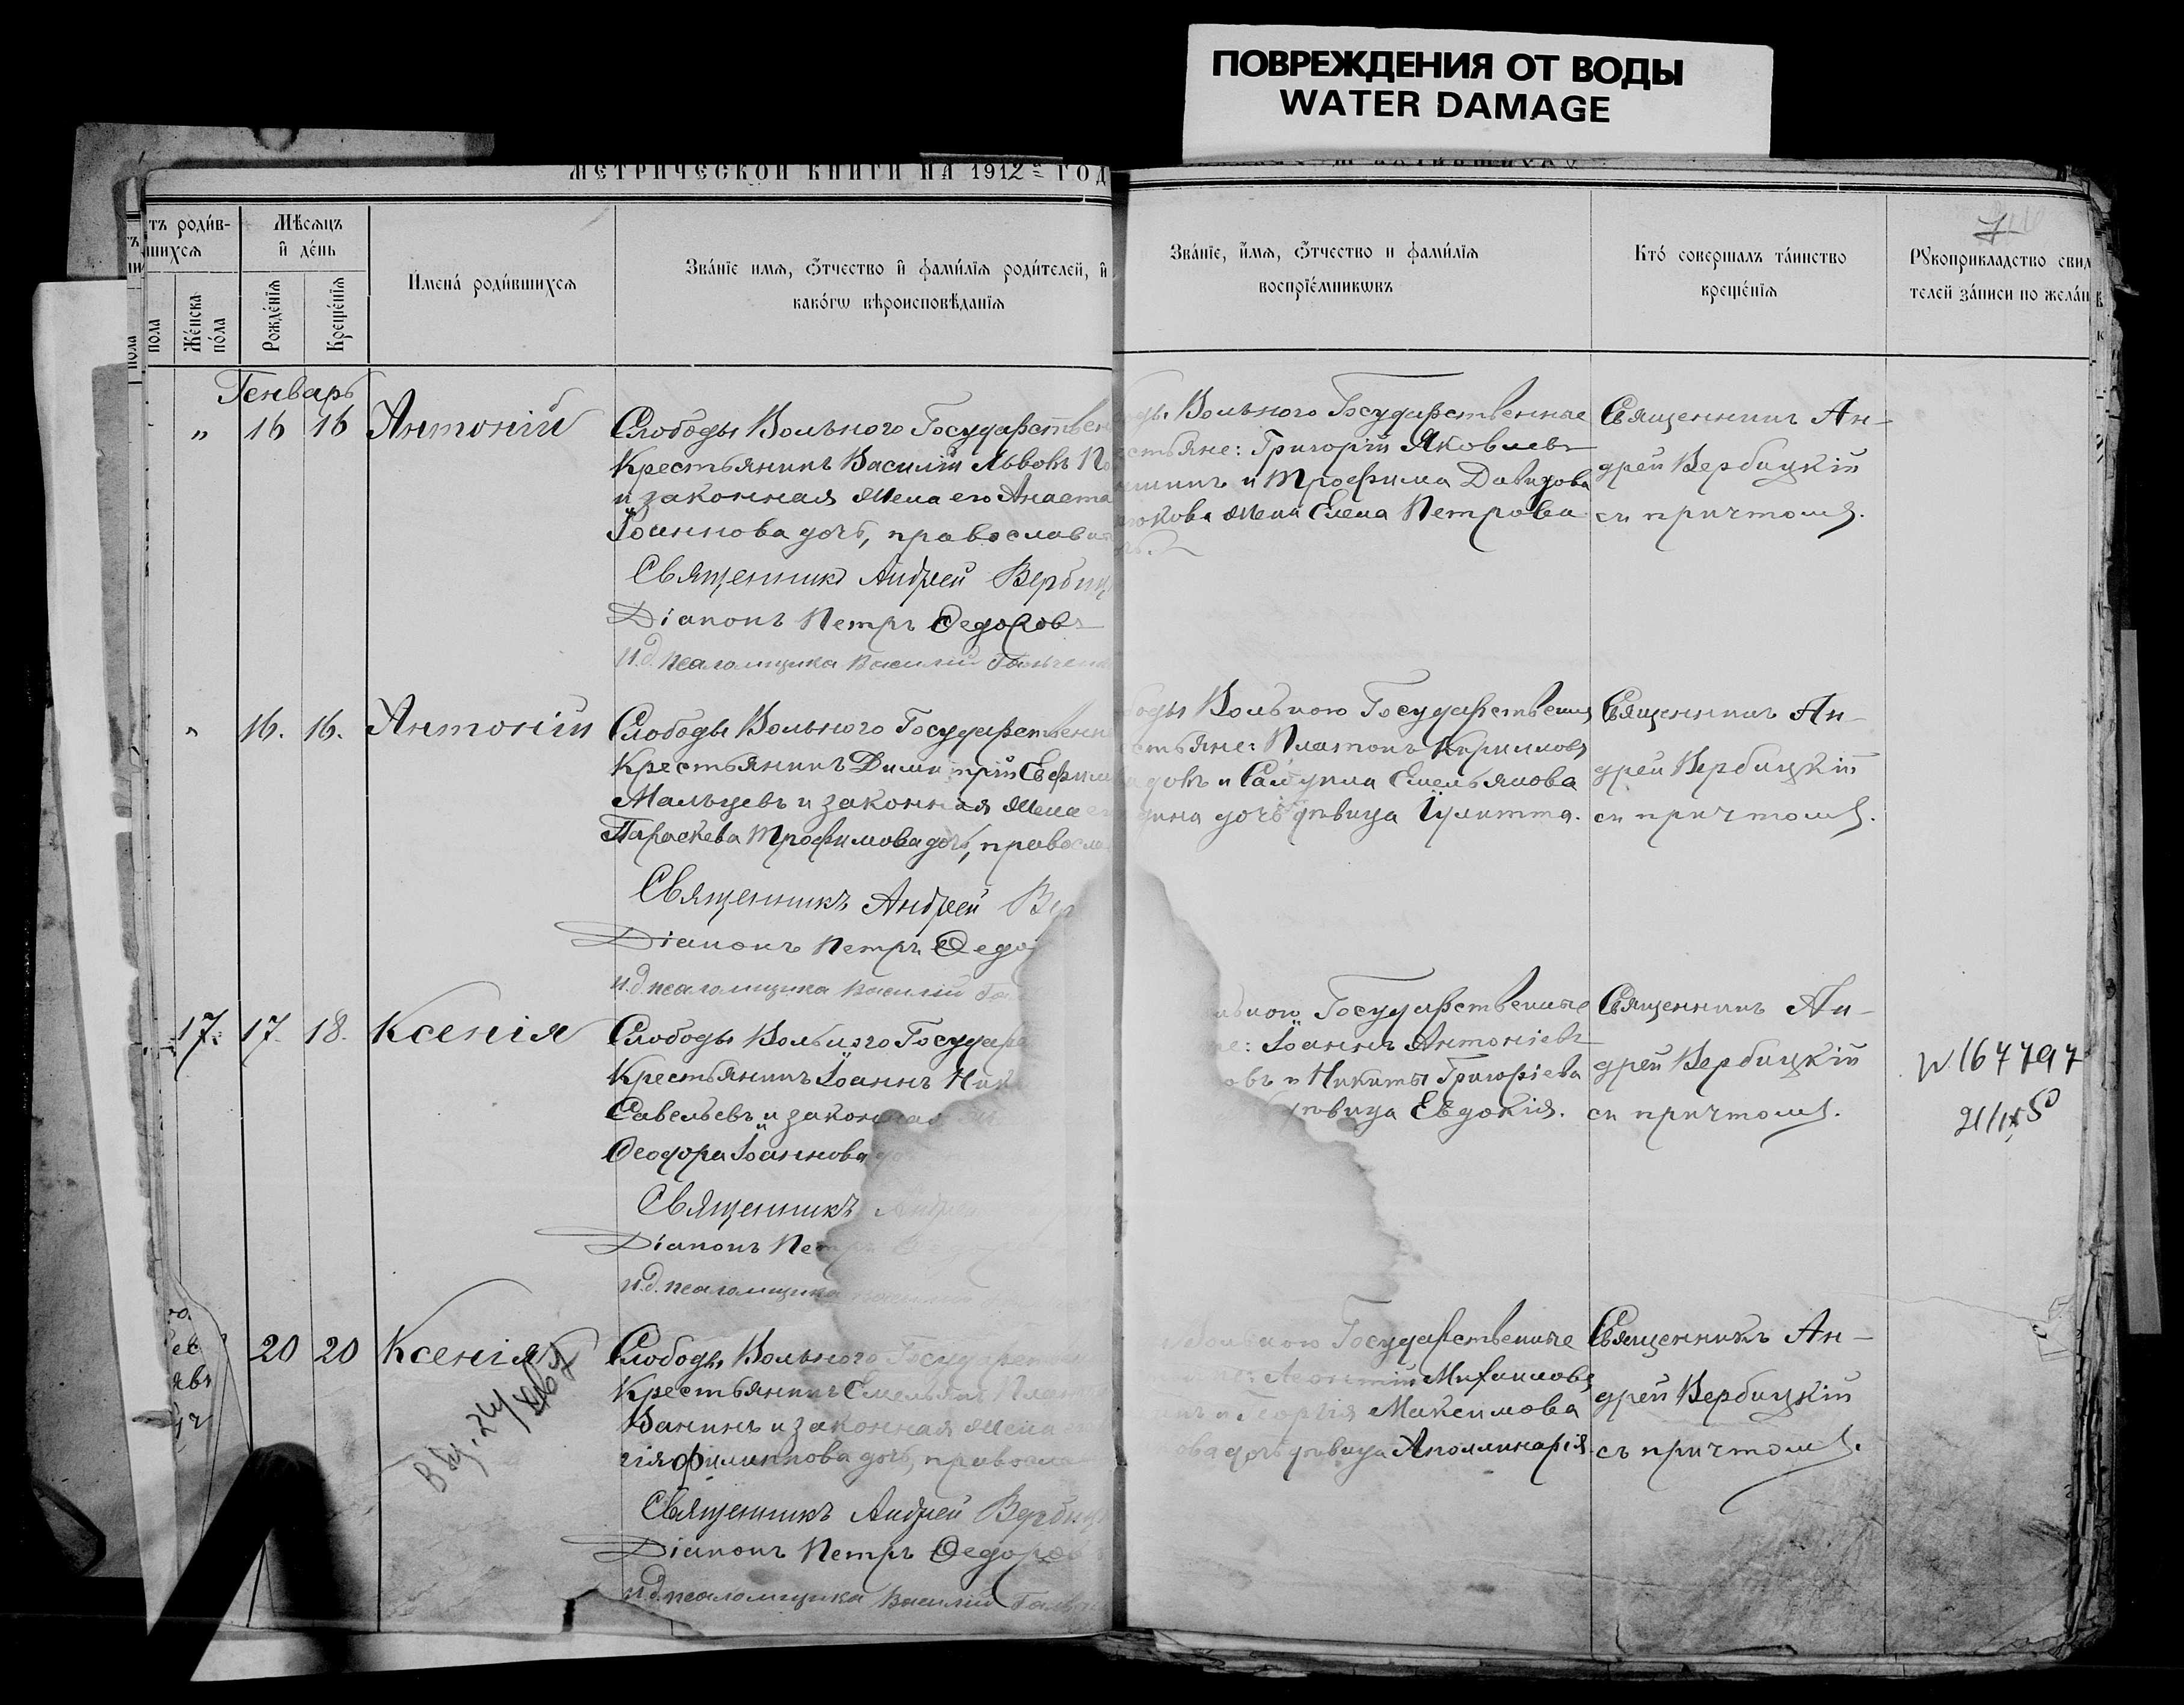 ПОВРЕЖДЕНИЯ ОТ ВОДЫ
WATER DAMAGE
МЕТРИЧЕСКОЙ КНИГИ НА 1912 ГОД
тъ роди́в-
шихсѧ
Же́нска по́ла
Мѣсѧцъ и҆ де́нь
Рожде́нїѧ
Креще́нїѧ
Имена́ роди́вшихсѧ
Зва́нїе имѧ, ѻ҆́тчество и҆ фами́лїѧ роди́телей, и҆
како́гѡ вѣроисповѣ́данїѧ
Зва́нїе, и҆́мѧ, ѻ҆́тчество и фами́лїѧ
воспрїе́мникѡвъ
Кто́ соверша́лъ та́инство
креще́нїѧ
Рꙋкоприкладство свид
телей за́писи по жела́н
Генварь
„ 16 16 Антоній
Слободы Вольного Государствен
крестьянинъ Василій Львовъ
и законная жена его Анаста
Іоаннова дочь, православн
Священникъ Андрей Вербиц
Діаконъ Петръ Ѳедоровъ
И.д. псаломщика Василій
Вольного Государственные
стьяне: Григорій Яковлевъ
и Трофима Давидова
жена Елена Петрова
Священникъ Ан-
дрей Вербицкій
съ причтомъ.
„ 16. 16. Антоній
Слободы Вольного Государственн
крестьянинъ Димитрій Евфим
Мальцевъ и законная жена
Параскева Трофимова дочь, правосла
Священникъ Андрей Вер
Діаконъ Петръ Ѳедо
И.д. псаломщика Василій
боды Вольного Государственн
стьяне: Платонъ Кирилловъ
и Емельянова
дочь дѣвица Іулитта.
Священникъ Ан-
дрей Вербицкій
съ причтомъ.
17. 17. 18. Ксенія
Слободы Вольного Государ
крестьянинъ Іоаннъ Ник
Савельевъ и законная
Ѳеодора Іоаннова
Священникъ Андрей
Діаконъ Петръ
И.д. псаломщика
Государственные
Іоаннъ Антоніевъ
и Никиты Григоріева
дѣвица Евдокія.
Священникъ Ан-
дрей Вербицкій
съ причтомъ.
20 20 Ксенія
Слободы Вольного Государствен
крестьянинъ Емельянъ Плат
Ванинъ и законная жена
гія Филиппова дочь, правосла
Священникъ Андрей Вербиц
Діаконъ Петръ Ѳедоровъ
И.д. псаломщика Василій
Вольного Государственные
Леонтій Михаиловъ
и Георгія Максимова
ова дочь дѣвица Аполлинарія.
Священникъ Ан-
дрей Вербицкій
съ причтомъ.